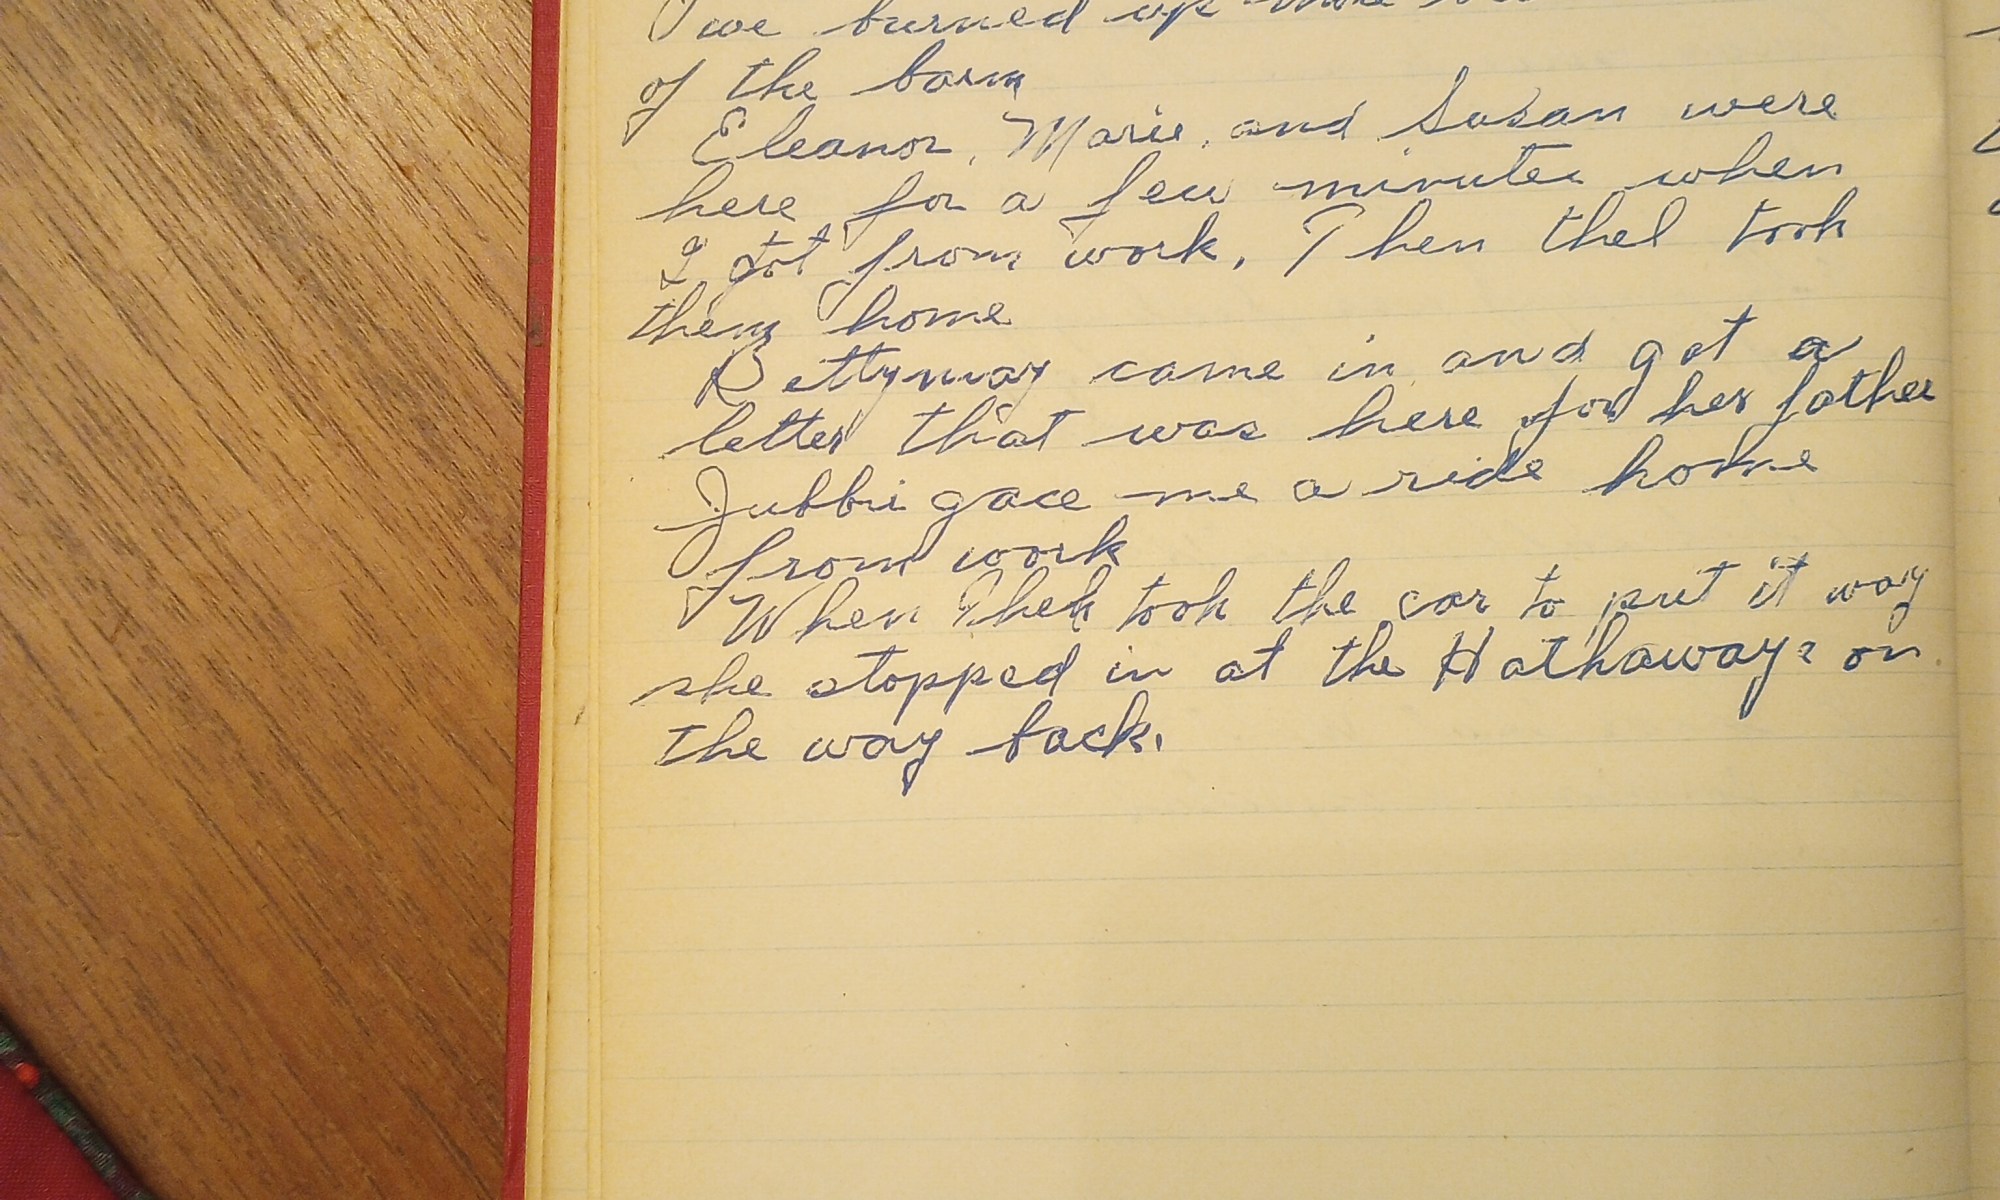 we burned up more
of the barn
Eleanor, Marie, and Susan were
here for a few minutes when
I got from work. Then thel took
them home
Bettymay came in and got a
letter that was here for her father
gave me a ride home
from work
When took the car to put it way
she stopped in at the Hathaways on
the way back.